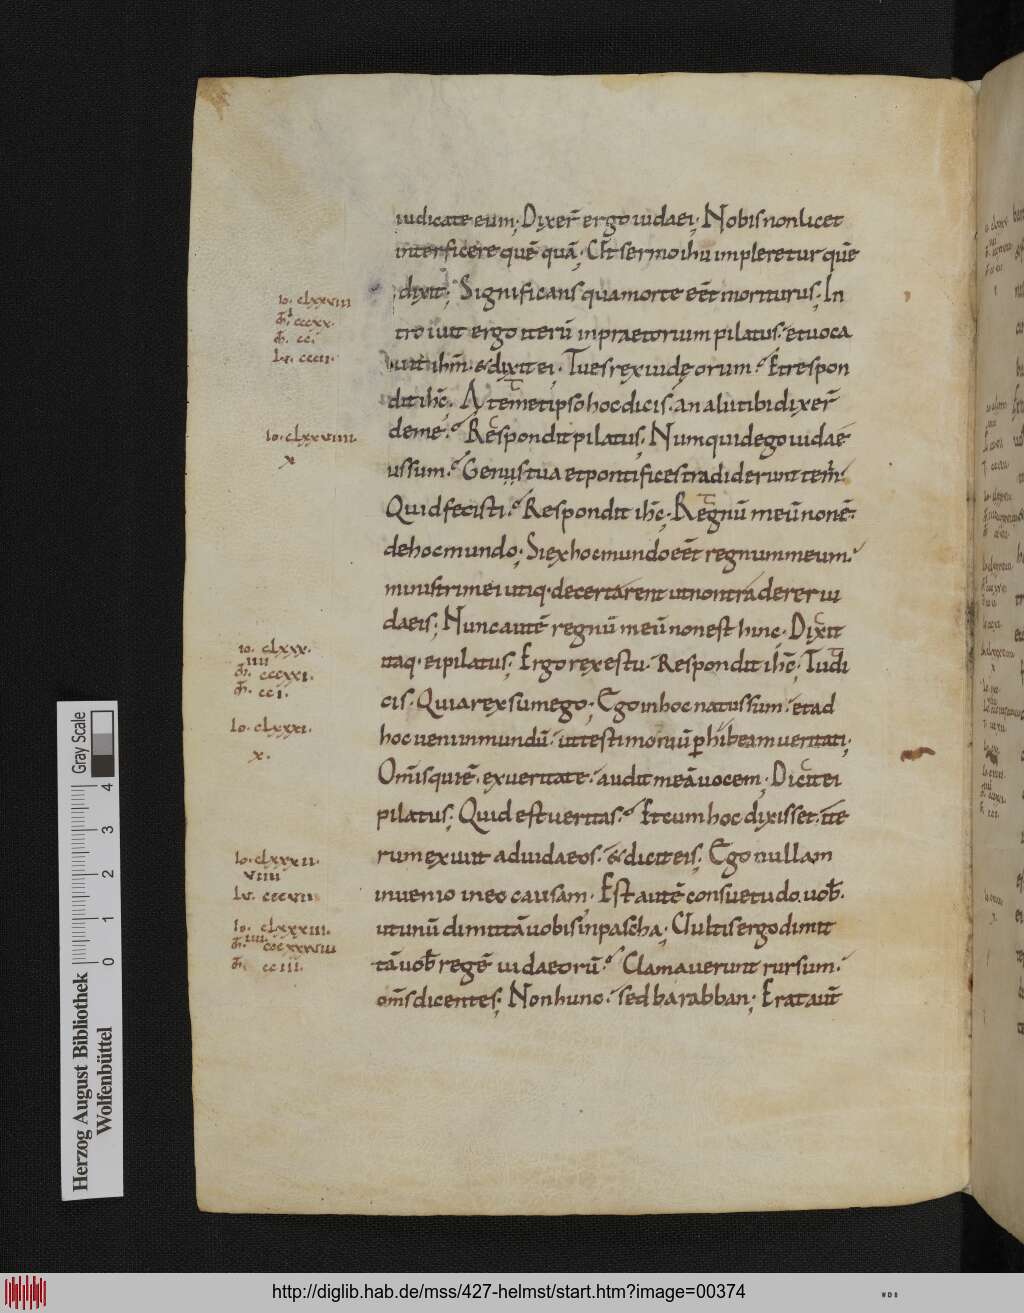 iudicate eum; Dixer̄ ergo iudaei; Nobis non licet
interficere quē quā; Ut sermo ihu impleretur quē
dixit; Significans qua morte eēt moriturus; In
io. clxxviii
m̄. cccxx.
tro iuit ergo iterū in praetorium pilatus. et uoca
m̄. cc.
Lc. cccii.
uit ihm̄. & dixit ei; Tu es rex iudęorum. Et respon
dit ihc̄. A temetipso hoc dicis. an alii tibi dixer̄
io. clxxviiii.
x
de me. Respondit pilatus; Numquid ego iudae
us sum. Genus tua et pontifices tradiderunt te m̄.
Quid fecisti. Respondit ihc̄. Regnū meū non ē
de hoc mundo; Si ex hoc mundo eēt regnum meum.
ministri mei utiq. decertarent ut non traderer iu
daeis; Nunc autē regnū meū non est hinc. Dixit
io. clxxx.
iiii
itaq. ei pilatus; Ergo rex es tu. Respondit ihc̄; Tu di
m̄. cccxxi.
m̄. cci.
cis. Quia rex sum ego; Ego in hoc natus sum. et ad
io. clxxxi.
x.
hoc ueni in mundū. ut testimoniū phibeam ueritati;
Om̄is qui ē. ex ueritate. audit meā uocem; Dicit ei
pilatus; Quid est ueritas. Et cum hoc dixisset. ite
io. clxxxii.
viiii
rum exiuit ad iudaeos. & dicit eis; Ego nullam
Lc. cccvii
inuenio in eo causam. Est autē consuetudo. uob̄.
io. clxxxiii.
iiii
ut unū dimittā uobis in pascha; Uultis ergo dimit
m̄. cccxxviii
m̄. cciii.
tā uob̄ regē iudaeorū. Clamauerunt rursum.
om̄s dicentes; Non hunc. sed barabban; Erat aut̄
Gray Scale
0 1 2 3 4
Herzog August Bibliothek
Wolfenbüttel
http://diglib.hab.de/mss/427-helmst/start.htm?image=00374